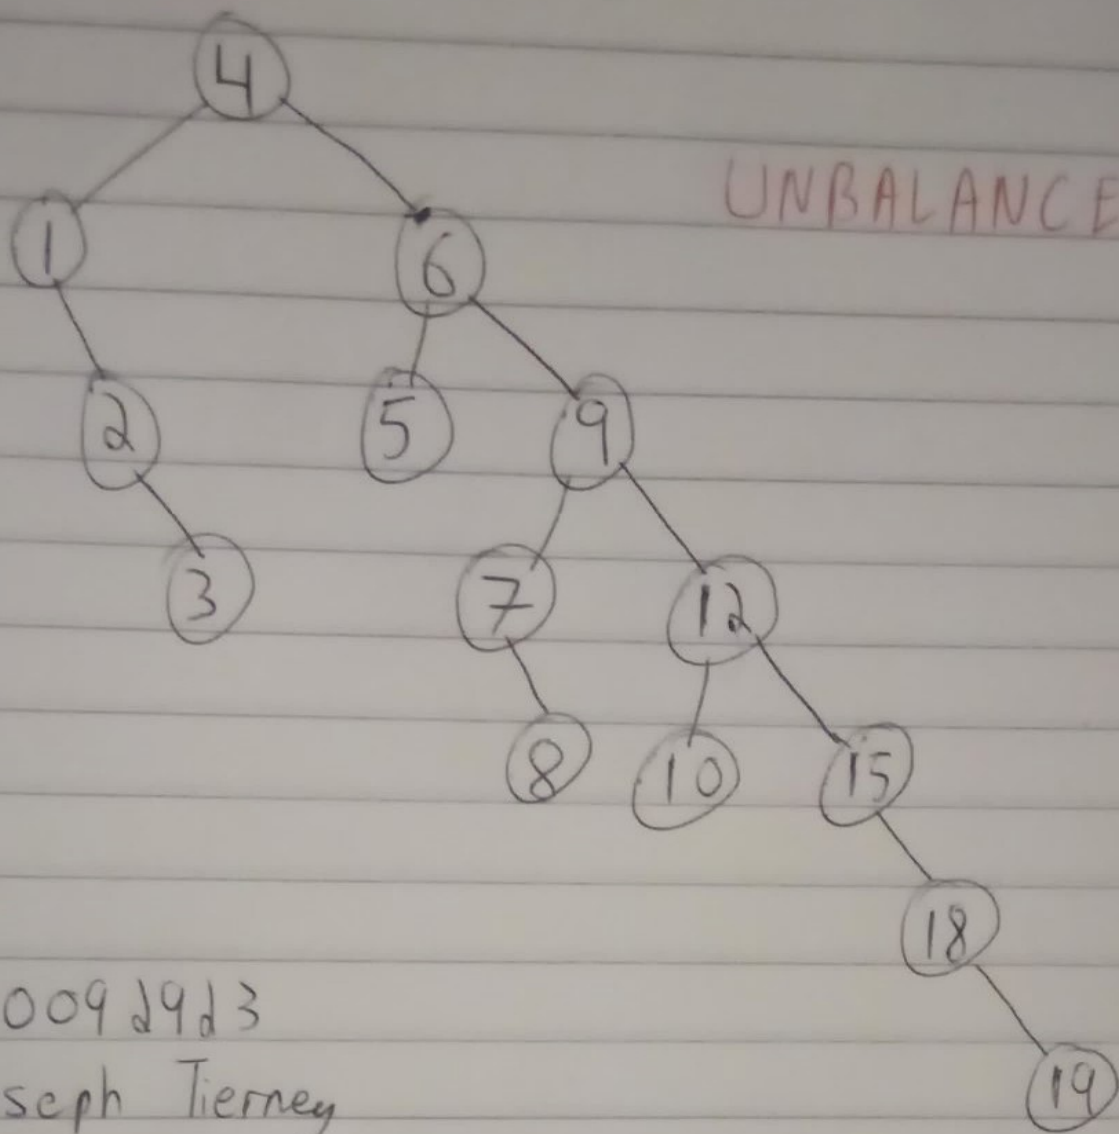 4
UNBALANCE
1
6
2
5
9
3
7
12
8
10
15
18
0092923
19
seph Tierney